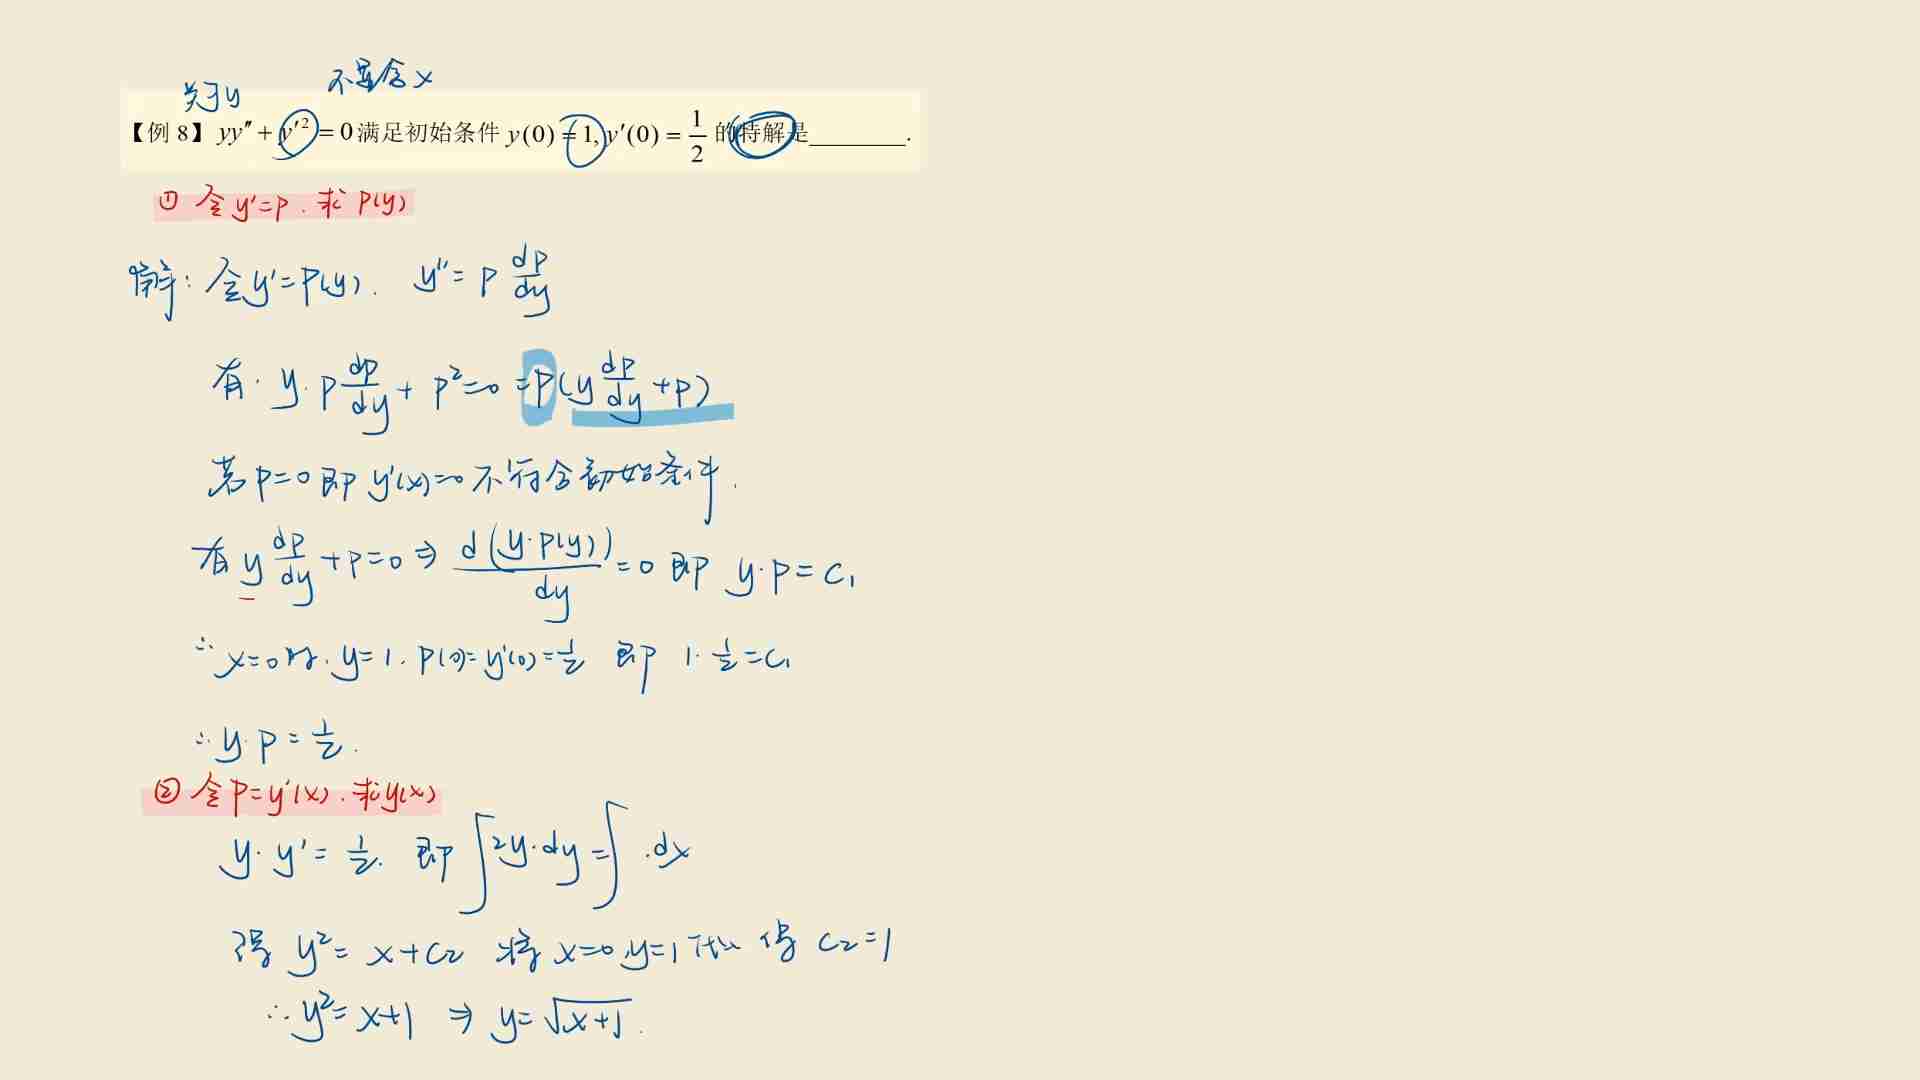 关于y 不显含x
【例 8】yy″ + y′² = 0 满足初始条件 y(0) = 1, y′(0) = 1/2 的特解是________.
① 令 y′=p . 求 p(y)
解: 令 y′=p(y). y″= p dp/dy
有. y·p dp/dy + p²=0 = p(y dp/dy +p)
若 p=0 即 y′(x)=0 不符合初始条件.
有 y dp/dy +p=0 ⇒ d(y·p(y))/dy =0 即 y·p=C₁
∵ x=0时. y=1. p(0)=y′(0)=1/2 即 1·1/2=C₁
∴ y·p=1/2.
② 令 p=y′(x). 求y(x)
y·y′=1/2. 即 ∫2y·dy=∫·dx
得 y²= x+C₂ 将 x=0,y=1 代入 得 C₂=1
∴ y²= x+1 ⇒ y=√(x+1).